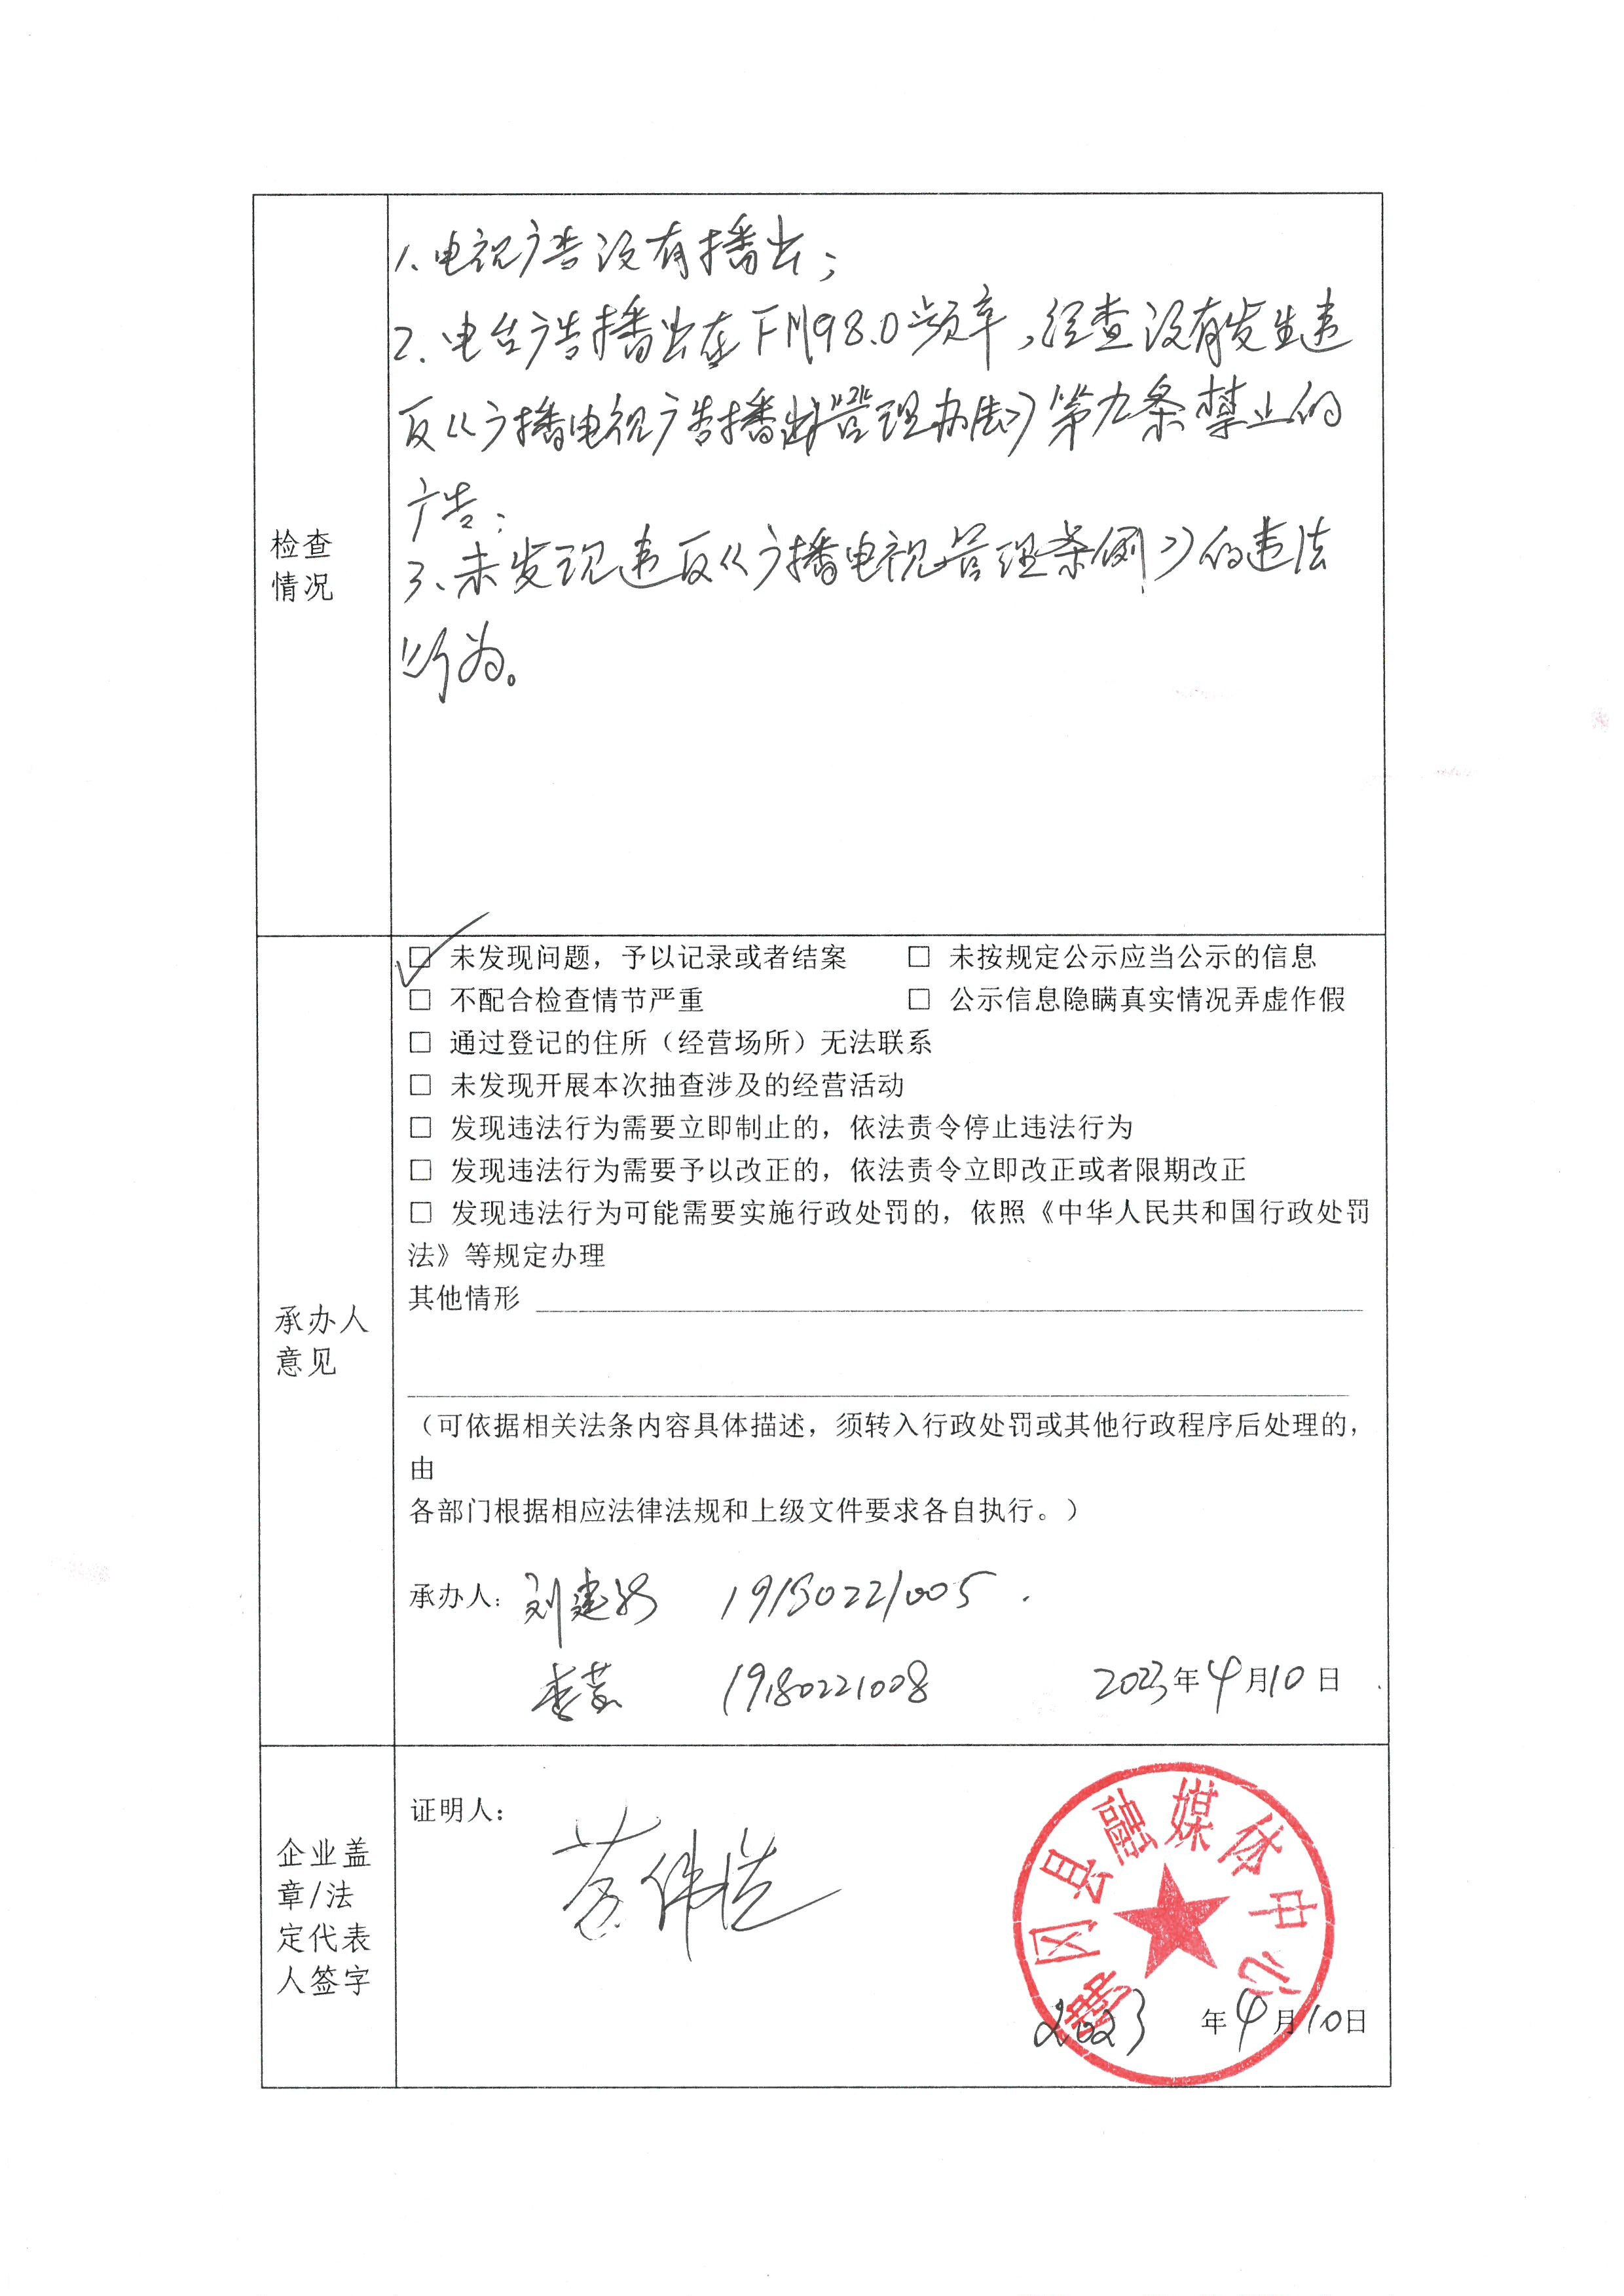 检查
情况
1.电视广告没有播出；
2.电台广告播出在FM98.0频率,经查没有发生违
反《广播电视广告播出管理办法》第九条禁止的
广告；
3.未发现违反《广播电视管理条例》的违法
行为。
承办人
意见
□ 未发现问题，予以记录或者结案 □ 未按规定公示应当公示的信息
□ 不配合检查情节严重 □ 公示信息隐瞒真实情况弄虚作假
□ 通过登记的住所（经营场所）无法联系
□ 未发现开展本次抽查涉及的经营活动
□ 发现违法行为需要立即制止的，依法责令停止违法行为
□ 发现违法行为需要予以改正的，依法责令立即改正或者限期改正
□ 发现违法行为可能需要实施行政处罚的，依照《中华人民共和国行政处罚
法》等规定办理
其他情形
（可依据相关法条内容具体描述，须转入行政处罚或其他行政程序后处理的，
由
各部门根据相应法律法规和上级文件要求各自执行。）
承办人： 刘建 19180221005
19180221008 2023年4月10日
企业盖
章/法
定代表
人签字
证明人：
伟
冈县融媒体中心
2023 年4月10日